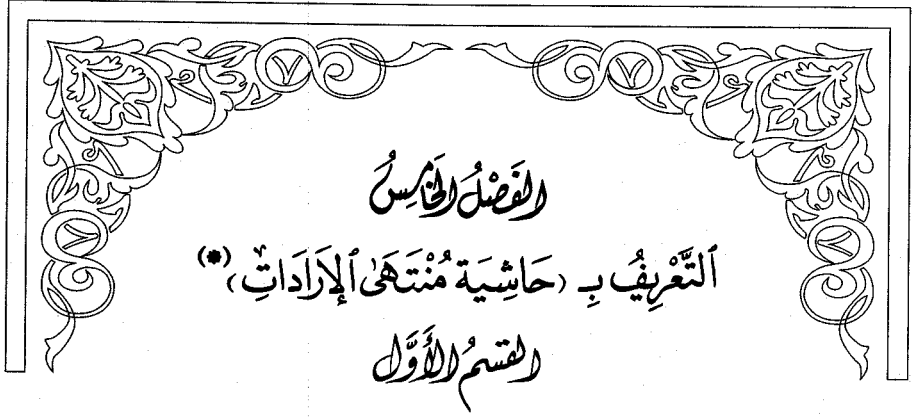 الفَصْلُ الخَامِسُ
ٱلتَّعْرِيفُ بِـ (حَاشِيَة مُنْتَهَىٰ ٱلإِرَادَاتِ) (*)
القِسْمُ الأَوَّل